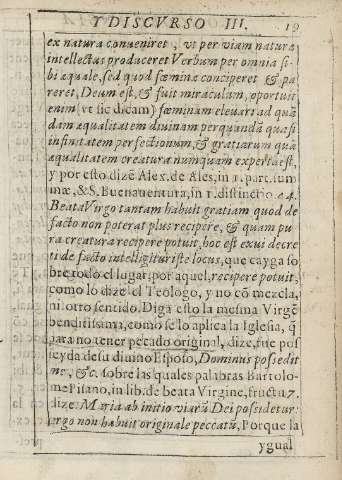 Y DISCVRSO III. 19
ex natura conueniret, vt per viam natura
intellectus produceret Verbum per omnia si-
bi æquale, sed quod fœmina conciperet & pa
reret, Deum est, & fuit miraculum, oportuit
enim (vt sic dicam) fœminam eleuari ad quã
dam æqualitatem diuinam per quandã quasi
infinitatem perfectionum, & gratiarum quã
æqualitatem creatura numquam experta est,
y por esto dizẽ Alex. de Ales, in 1. part. sum
mæ, & S. Buenauentura, in 1. distinctio. 44.
Beata Virgo tantam habuit gratiam quod de
facto non poterat plus recipere, & quam pu
ra creatura recipere potuit, hoc est ex ui decre
ti de facto intelligitur iste locus, que cayga so
bre todo el lugar, por aquel, recipere potuit,
como lo dize el Teologo, y no cõ mezcla,
ni otro sentido. Diga esto la mesma Virgẽ
benditissima, como se lo aplica la Iglesia, q̃
para no tener pecado original, dize, fue pos
seyda de su diuino Esposo, Dominus possedit
me, &c. sobre las quales palabras Bartolo-
me Pisano, in lib. de beata Virgine, fructu 7.
dize: Maria ab initio viarũ Dei possidetur:
ergo non habuit originale peccatũ, Porque la
ygual